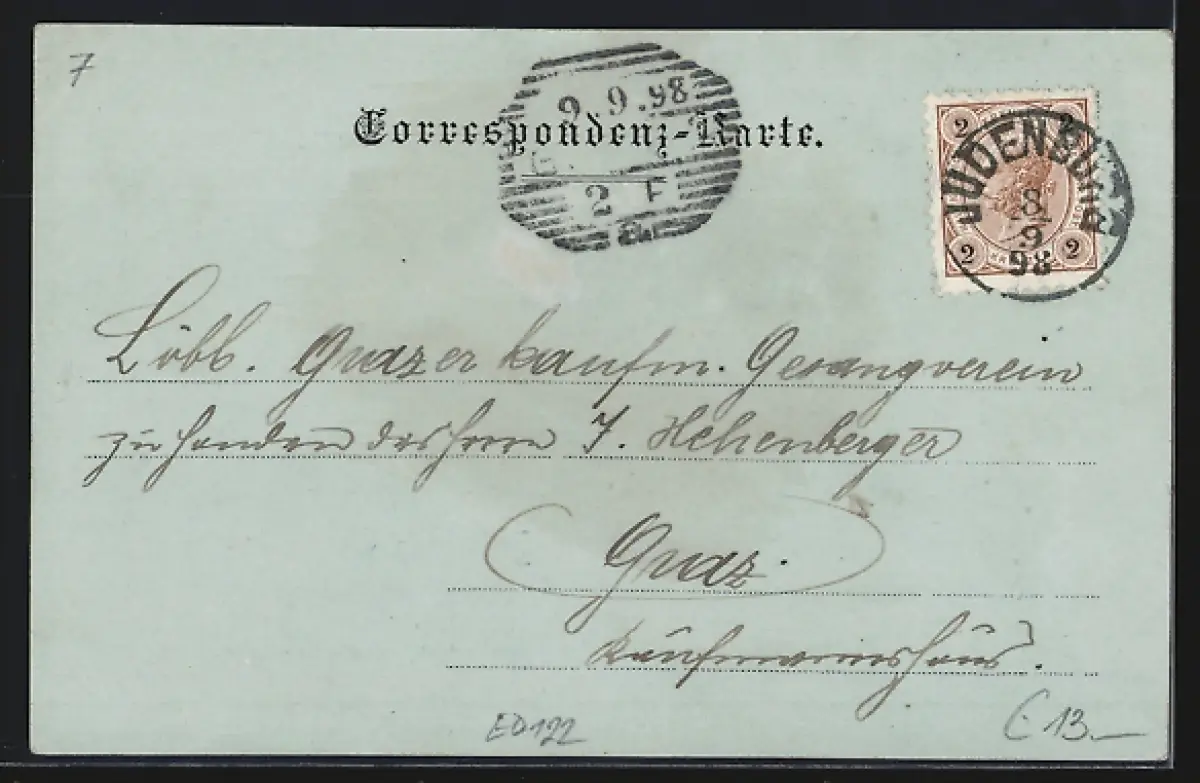 7
9.9.98
Correspondenz-Karte.
2 F
2 2
JUDENBURG
8
9
98
2 2
Löbl. Grazer kaufm. Gesangverein
zu Handen des Herrn J. Hehenberger
Graz.
Kaufmvereinshaus.
ED122
13.—